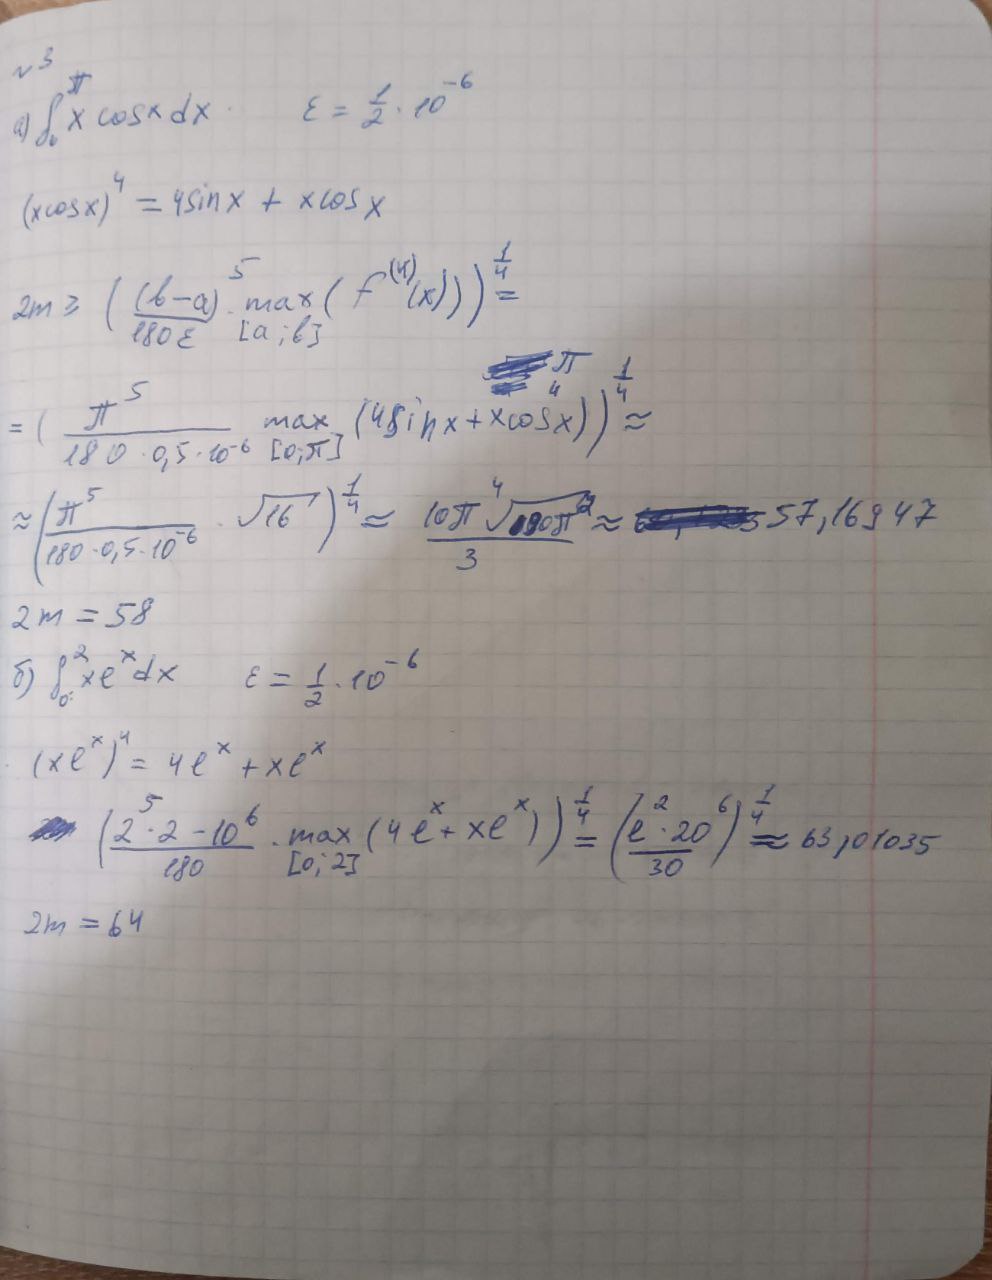 №3
а) ∫₀^π x cosx dx. ε = 1/2 · 10⁻⁶
(xcosx)⁴ = 4sinx + xcosx
2m ≥ ((b-a)⁵/180ε · max[a;b] (f⁽⁴⁾(x)))^(1/4) =
= (π⁵/180·0,5·10⁻⁶ max[0;π] (4sinx + xcosx))^(1/4) ≈
≈ (π⁵/180·0,5·10⁻⁶ · √16)^(1/4) ≈ 10π ⁴√ /3 ≈ 57,16947
2m = 58
б) ∫₀² xeˣdx ε = 1/2 · 10⁻⁶
(xeˣ)⁴ = 4eˣ + xeˣ
(2⁵·2-10⁶/180 · max[0;2] (4eˣ + xeˣ))^(1/4) = (e²·20⁶/30)^(1/4) ≈ 63,01035
2m = 64